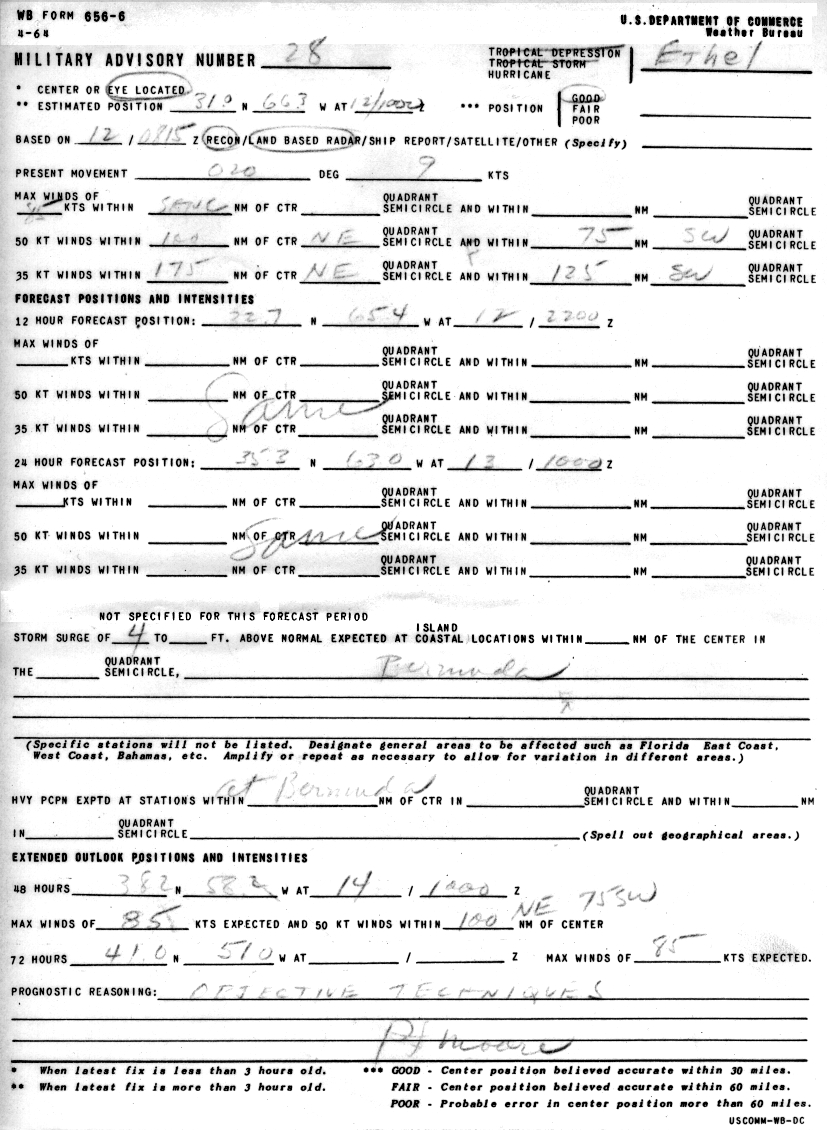 WB FORM 656-6
4-64
U.S.DEPARTMENT OF COMMERCE
Weather Bureau
MILITARY ADVISORY NUMBER 28
TROPICAL DEPRESSION
TROPICAL STORM
HURRICANE
Ethel
* CENTER OR EYE LOCATED
** ESTIMATED POSITION 31.0 N 66.3 W AT 12/1000Z
*** POSITION
GOOD
FAIR
POOR
BASED ON 12 / 0815 Z RECON/LAND BASED RADAR/SHIP REPORT/SATELLITE/OTHER (Specify)
PRESENT MOVEMENT 020 DEG 9 KTS
MAX WINDS OF
85 KTS WITHIN NM OF CTR QUADRANT SEMICIRCLE AND WITHIN NM QUADRANT SEMICIRCLE
50 KT WINDS WITHIN 100 NM OF CTR NE QUADRANT SEMICIRCLE AND WITHIN 75 NM SW QUADRANT SEMICIRCLE
35 KT WINDS WITHIN 175 NM OF CTR NE QUADRANT SEMICIRCLE AND WITHIN 125 NM SW QUADRANT SEMICIRCLE
FORECAST POSITIONS AND INTENSITIES
12 HOUR FORECAST POSITION: N 65.4 W AT 12 / 2200 Z
MAX WINDS OF
KTS WITHIN NM OF CTR QUADRANT SEMICIRCLE AND WITHIN NM QUADRANT SEMICIRCLE
50 KT WINDS WITHIN NM OF CTR QUADRANT SEMICIRCLE AND WITHIN NM QUADRANT SEMICIRCLE
Same
35 KT WINDS WITHIN NM OF CTR QUADRANT SEMICIRCLE AND WITHIN NM QUADRANT SEMICIRCLE
24 HOUR FORECAST POSITION: 35.3 N 63.0 W AT 13 / 1000 Z
MAX WINDS OF
KTS WITHIN NM OF CTR QUADRANT SEMICIRCLE AND WITHIN NM QUADRANT SEMICIRCLE
50 KT WINDS WITHIN NM OF CTR QUADRANT SEMICIRCLE AND WITHIN NM QUADRANT SEMICIRCLE
Same
35 KT WINDS WITHIN NM OF CTR QUADRANT SEMICIRCLE AND WITHIN NM QUADRANT SEMICIRCLE
NOT SPECIFIED FOR THIS FORECAST PERIOD
STORM SURGE OF 4 TO FT. ABOVE NORMAL EXPECTED AT ISLAND COASTAL LOCATIONS WITHIN NM OF THE CENTER IN
THE QUADRANT SEMICIRCLE, Bermuda
(Specific stations will not be listed. Designate general areas to be affected such as Florida East Coast,
West Coast, Bahamas, etc. Amplify or repeat as necessary to allow for variation in different areas.)
HVY PCPN EXPTD AT STATIONS WITHIN at Bermuda NM OF CTR IN QUADRANT SEMICIRCLE AND WITHIN NM
IN QUADRANT SEMICIRCLE (Spell out geographical areas.)
EXTENDED OUTLOOK POSITIONS AND INTENSITIES
48 HOURS 38.2 N 58.2 W AT 14 / 1000 Z
MAX WINDS OF 85 KTS EXPECTED AND 50 KT WINDS WITHIN 100 NE 75 SW NM OF CENTER
72 HOURS 41.0 N 51.0 W AT / Z MAX WINDS OF 85 KTS EXPECTED.
PROGNOSTIC REASONING: OBJECTIVE TECHNIQUES
Moore
* When latest fix is less than 3 hours old.
** When latest fix is more than 3 hours old.
*** GOOD - Center position believed accurate within 30 miles.
FAIR - Center position believed accurate within 60 miles.
POOR - Probable error in center position more than 60 miles.
USCOMM-WB-DC